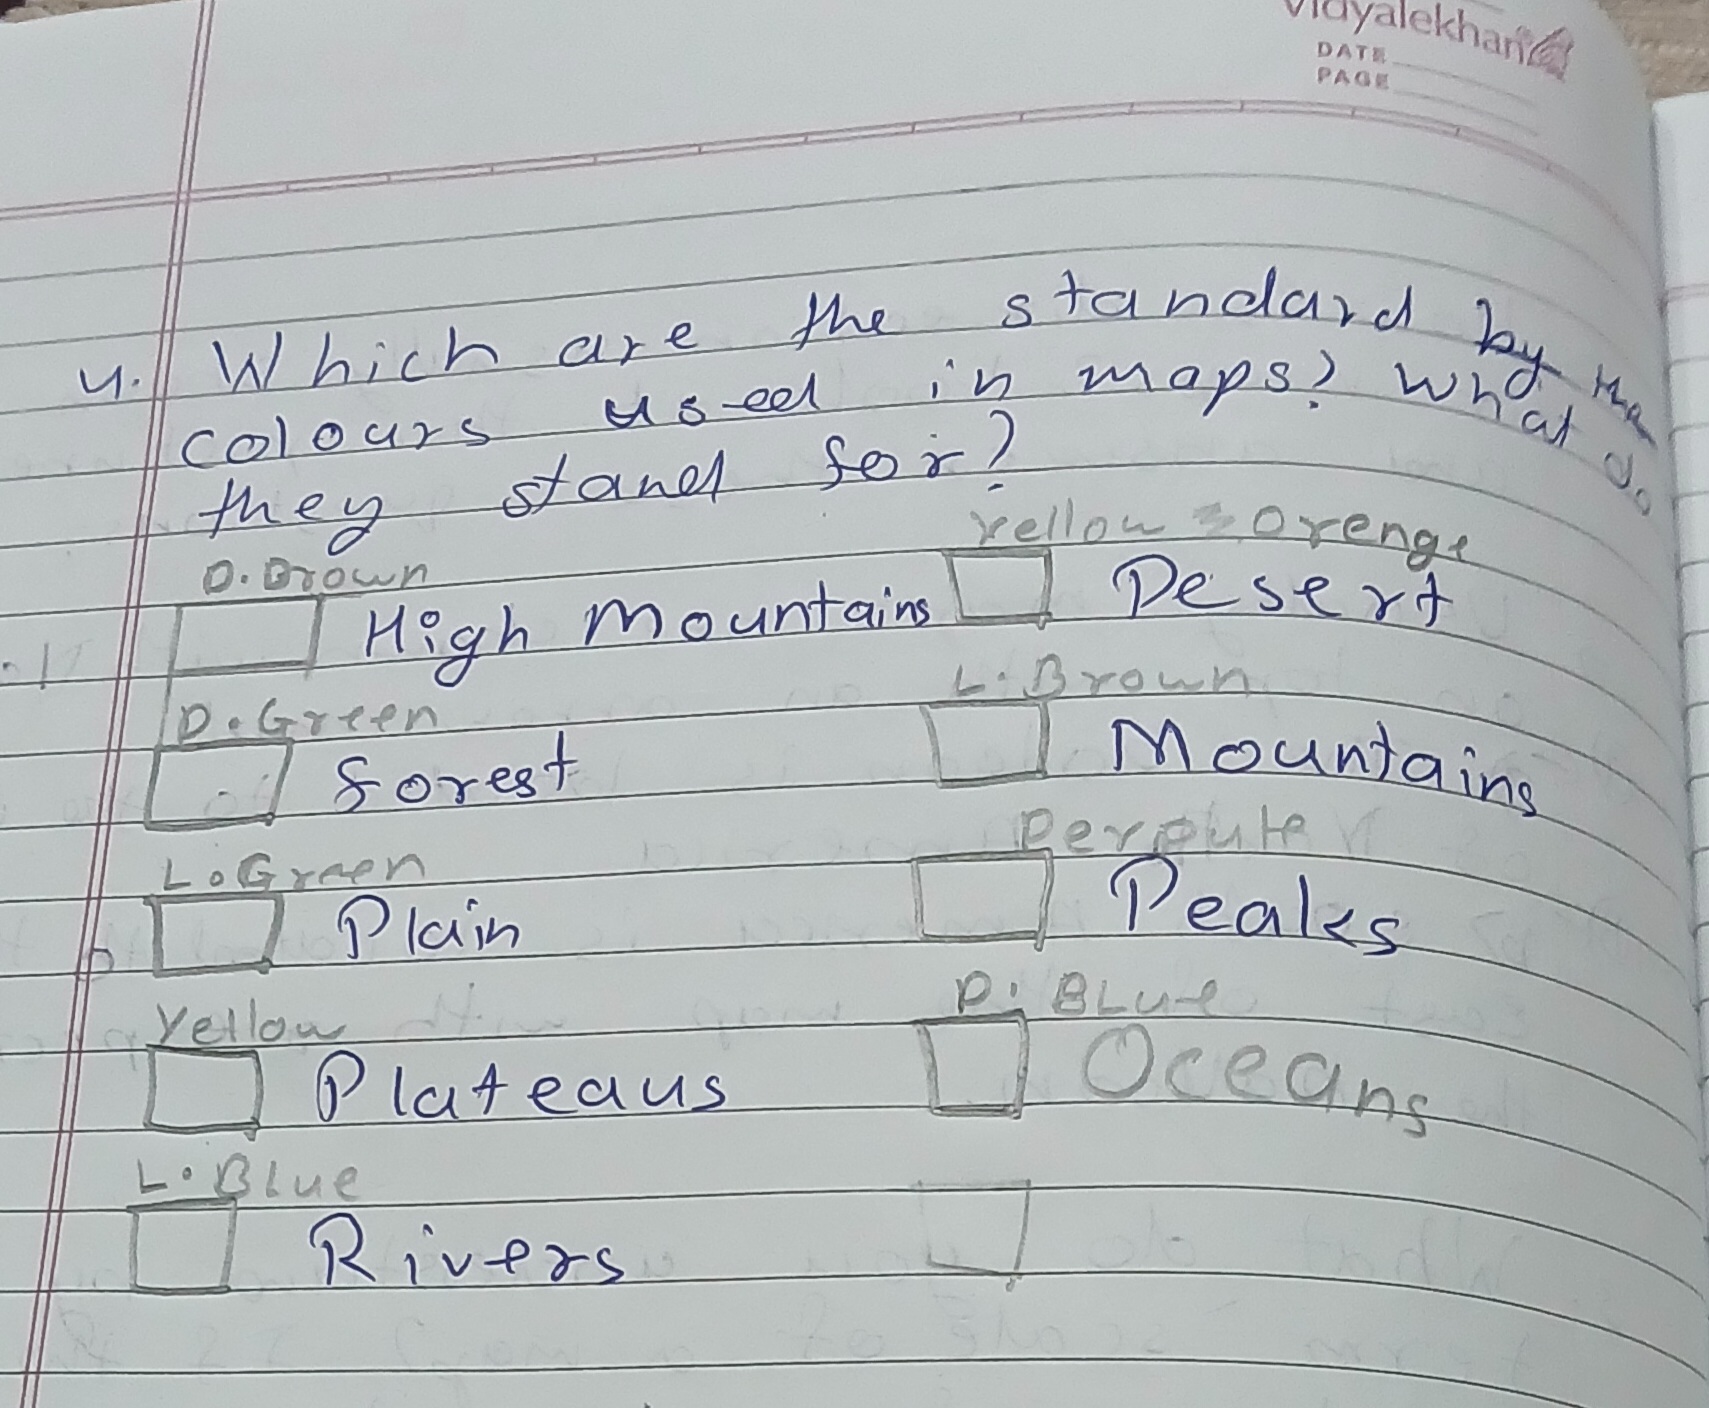 Vidyalekhan
DATE
PAGE
4. Which are the standard by the
colours used in maps? What do
they stand for?
D. Brown
High Mountains
Yellow Orenge
Desert
D. Green
forest
L. Brown
Mountains
L. Green
Plain
Peaks
Yellow
Plateaus
D. BLue
Oceans
L. BLue
Rivers